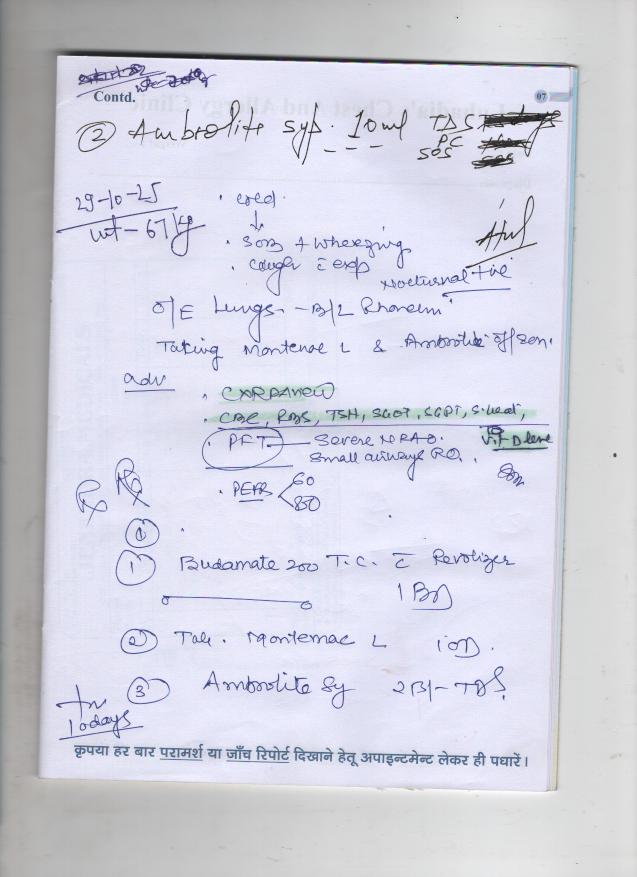 Contd.
07
② Ambrolite syp. 10ml TDS
PC
SOS
29-10-25
wt - 67 kg
· cold
↓
· SOB + wheezing
· cough c̄ exp
Nocturnal +ive
O/E Lungs - B/L Rhonchi
Taking Montemac L & Ambrolite off/on.
adv
· CXR PA view
· CBC, RBS, TSH, SGOT, SGPT, S.creat,
Vit D level
PFT — Severe
Small airways
· PEFR < 60
80
Rx
① Budamate 200 T.C. c̄ Revolizer
1 BD
② Tab. Montemac L 1 OD.
③ Ambrolite Sy TDS
10 days
कृपया हर बार परामर्श या जाँच रिपोर्ट दिखाने हेतू अपाइन्टमेन्ट लेकर ही पधारें।